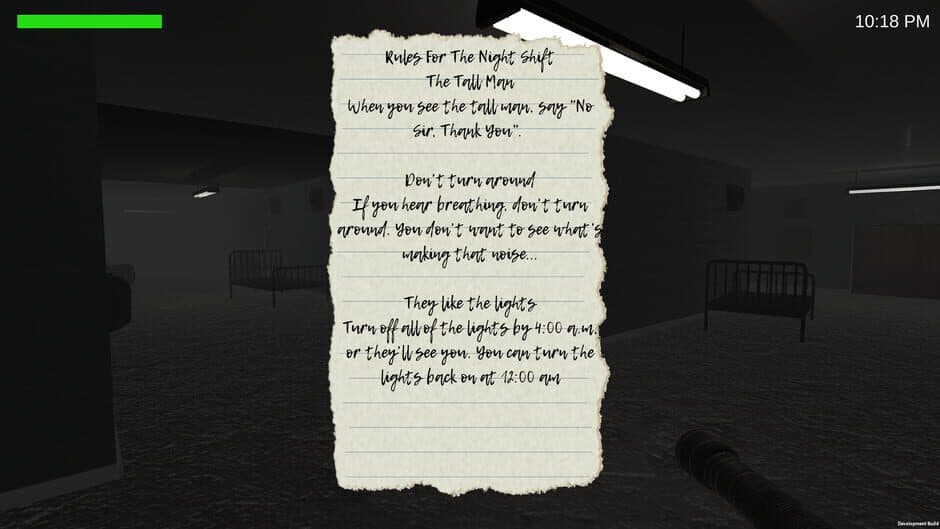 10:18 PM
Rules For The Night Shift
The Tall Man
When you see the tall man, say "No
Sir, Thank You".
Don't turn around
If you hear breathing, don't turn
around. You don't want to see what's
making that noise...
They like the lights
Turn off all of the lights by 4:00 a.m.
or they'll see you. You can turn the
lights back on at 12:00 am
Development Build